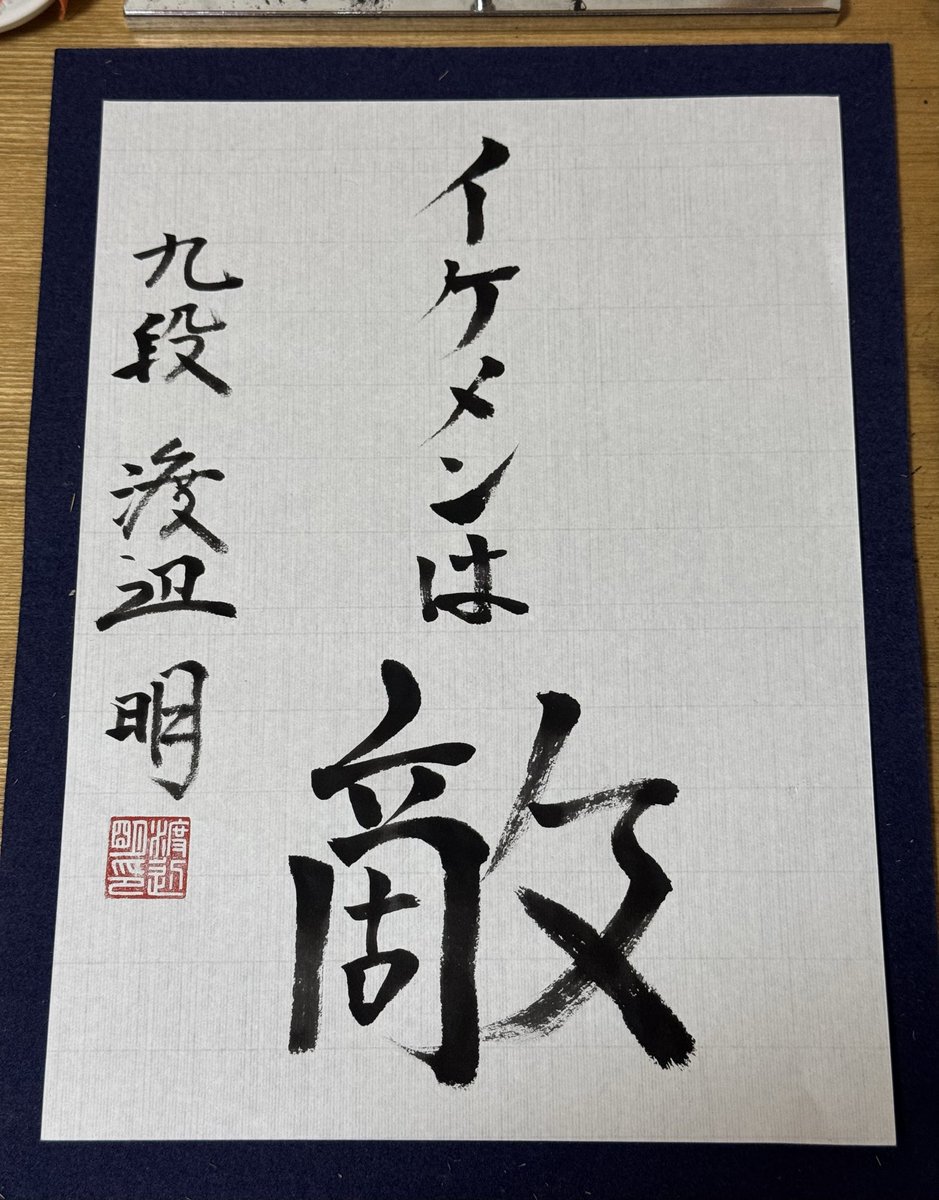 イケメンは
敵
九段 渡辺 明
渡辺
明印